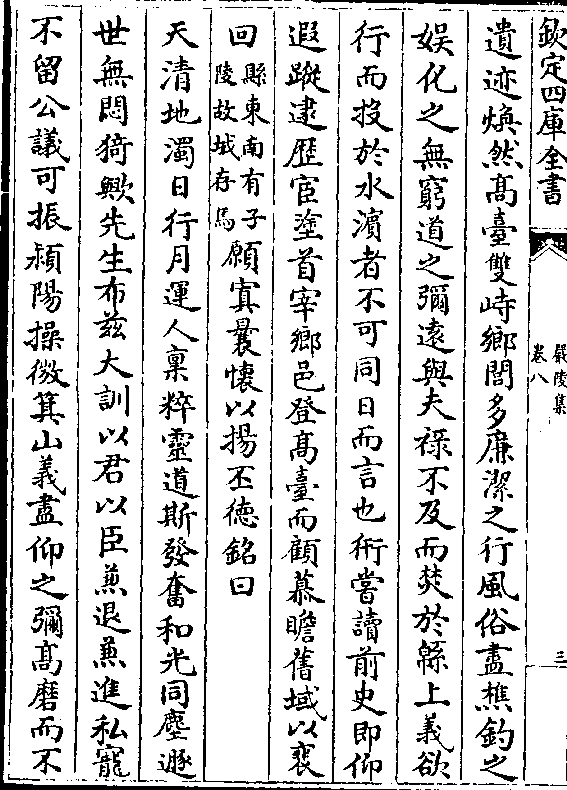 欽定四庫全書
嚴陵集
卷八
三
遺迹煥然髙臺雙峙鄉閭多廉潔之行風俗盡樵釣之
娛化之無窮道之彌逺與夫禄不及而焚於緜上義欲
行而投於水濵者不可同日而言也術嘗讀前史即仰
遐蹤逮歴宦塗首宰鄉邑登髙臺而顧慕瞻舊域以裵
回縣東南有子陵故城存焉願寘曩懐以揚丕德銘曰
天清地濁日行月運人禀粹靈道斯發奮和光同塵遯
世無悶猗歟先生布兹大訓以君以臣兼退兼進私寵
不留公議可振潁陽操微箕山義盡仰之彌髙磨而不